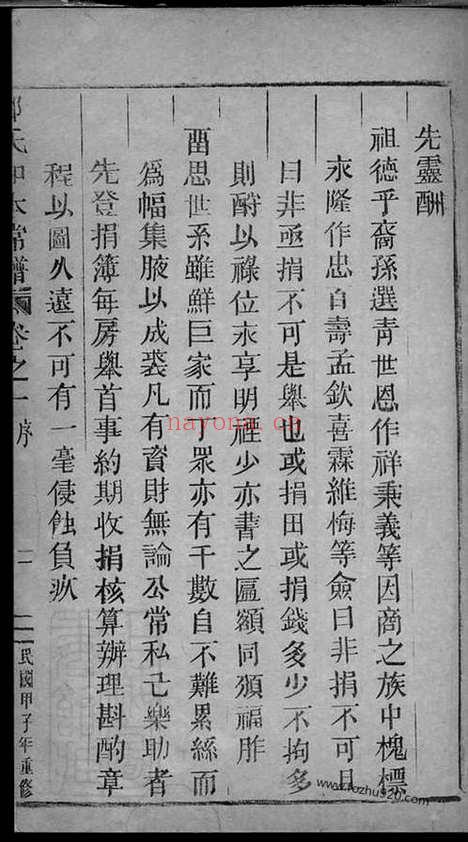 先靈酬
祖德乎裔孫選青世恩作祥秉義等因商之族中槐標
永隆作忠百壽孟欽喜霖維梅等僉曰非捐不可且
曰非亟捐不可是舉也或捐田或捐錢多少不拘多
則酹以祿位永享明禋少亦書之匾額同頒福胙
畱思世系雖鮮巨家而丁眾亦有千數自不難累絲而
爲幅集腋以成裘凡有資財無論公常私己樂助者
先登捐簿每房舉首事約期收捐核算辦理斟酌章
程以圖久遠不可有一毫侵蝕負疚
氏 譜 卷之一 序
民國甲子年重修
nayona.cn
www.fozhu920.com